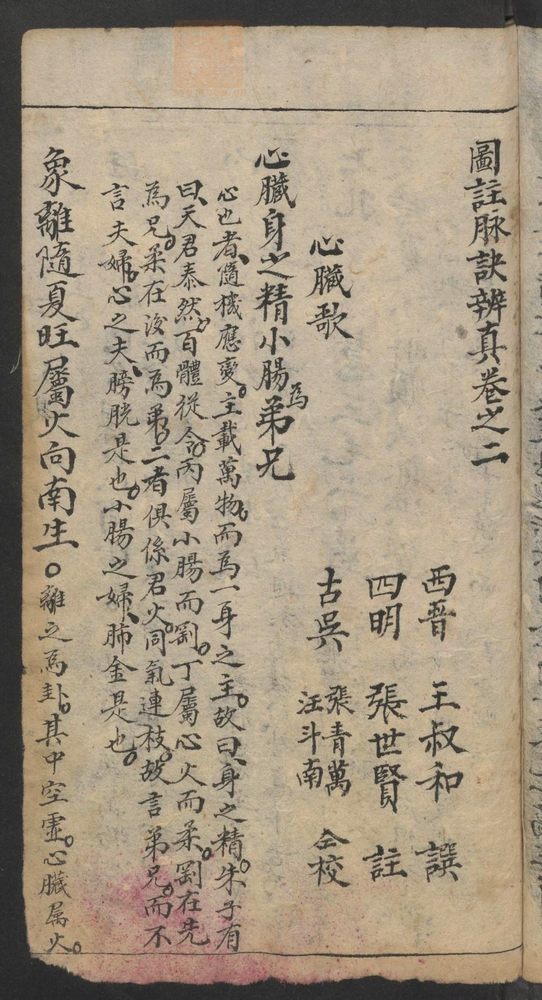 圖註脉訣辨真卷之二
西晋 王叔和 譔
四明 張世賢 註
古吳 張青萬 汪斗南 仝校
心臟歌
心臟身之精小腸為弟兄
心也者隨機應變主載萬物而為一身之主故曰身之精朱子有
曰天君泰然百體從令丙屬小腸而剛丁屬心火而柔剛在先
為兄柔在後而為弟二者俱係君火同氣連枝故言弟兄而不
言夫婦心之夫膀胱是也小腸之婦肺金是也
象離隨夏旺屬火向南生○離之為卦其中空虛心臟属火